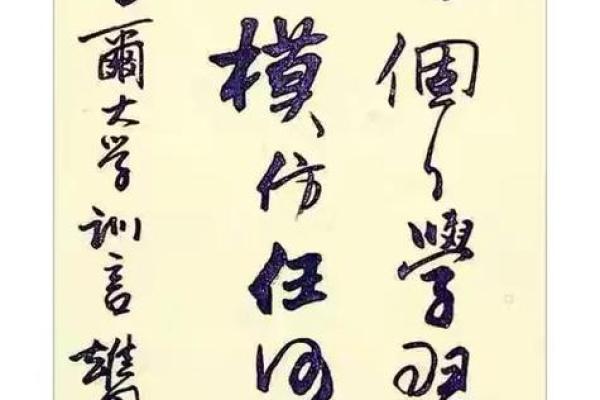 個々學
模仿任何
爾大学訓言